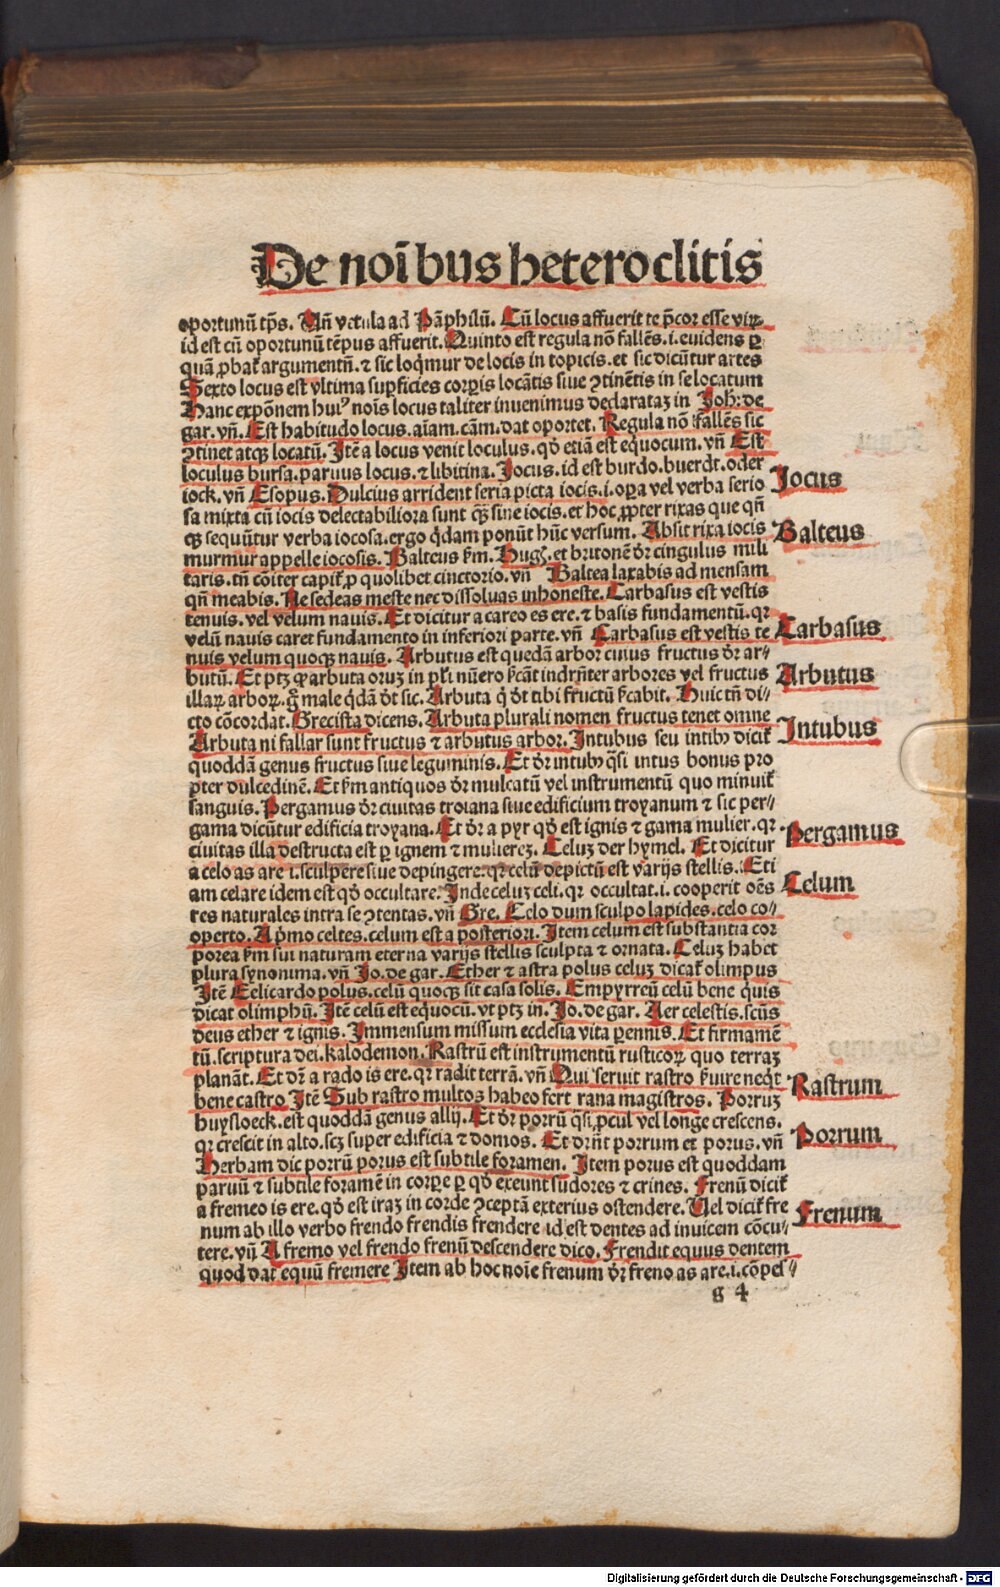 De noībus heteroclitis
oportunū tp̄s. Vn̄ vetula ad Pāphilū. Cū locus affuerit te p̄cor esse virꝫ
id est cū oportunū tēpus affuerit. Quinto est regula nō fallēs .i. euidens ꝑ
quā ꝓbat̄ argumentū. ⁊ sic loq̄mur de locis in topicis. et sic dicūtur artes
Sexto locus est vltima suꝑficies corꝑis locātis siue ꝯtinētis in se locatum
Hanc expōnem huiꝰ nois locus taliter inuenimus declarataꝫ in Joh: de
gar. vn̄. Est habitudo locus. aīam. cām. dat oportet. Regula nō fallēs sic
ꝯtinet atqꝫ locatū. Itē a locus venit loculus. qđ etiā est equocum. vn̄ Est
loculus bursa. paruus locus. ⁊ libitina. Jocus. id est burdo. buerdt. oder
iock. vn̄ Esopus. Dulcius arrident seria picta iocis .i. oꝑa vel verba serio
sa mixta cū iocis delectabiliora sunt qꝫ sine iocis. et hoc ꝓpter rixas que qn̄
qꝫ sequūtur verba iocosa. ergo q̄dam ponūt hūc versum. Absit rixa iocis
murmur appelle iocosis. Balteus ẜm. Hug. et britonē dr̄ cingulus mili
taris. tn̄ cōiter capit̄ ꝓ quolibet cinctorio. vn̄ Baltea laxabis ad mensam
qn̄ meabis. Ne sedeas meste nec dissoluas inhoneste. Carbasus est vestis
tenuis. vel velum nauis. Et dicitur a careo es ere. ⁊ basis fundamentū. qꝛ
velū nauis caret fundamento in inferiori parte. vn̄ Carbasus est vestis te
nuis velum quoqꝫ nauis. Arbutus est quedā arbor cuius fructus dr̄ ar⸗
butū. Et ptꝫ ꝙ arbuta oruꝫ in pl̄i nūero ẜcāt indr̄nter arbores vel fructus
illaꝝ arboꝝ. gͦ male q̄dā dn̄t sic. Arbuta q̄ dn̄t tibi fructū ẜcabit. Huic tn̄ di⸗
cto cōcordat. Grecista dicens. Arbuta plurali nomen fructus tenet omne
Arbuta ni fallar sunt fructus ⁊ arbutus arbor. Intubus seu intibꝰ dicit̄
quoddā genus fructus siue leguminis. Et dr̄ intubꝰ q̄si intus bonus pro
pter dulcedinē. Et ẜm antiquos dr̄ mulcatū vel instrumentū quo minuit̄
sanguis. Pergamus dr̄ ciuitas troiana siue edificium troyanum ⁊ sic per⸗
gama dicūtur edificia troyana. Et dr̄ a pyr qđ est ignis ⁊ gama mulier. qꝛ
ciuitas illa destructa est ꝑ ignem ⁊ muliereꝫ. Celuꝫ der hymel. Et dicitur
a celo as are .i. sculpere siue depingere. qꝛ celū depictū est varijs stellis. Eti
am celare idem est qđ occultare. Inde celuꝫ celi. qꝛ occultat .i. cooperit oēs
res naturales intra se ꝯtentas. vn̄ Gre. Celo dum sculpo lapides. celo co⸗
operto. A pͥmo celtes. celum est a posteriori. Item celum est substantia cor
porea ẜm sui naturam eterna varijs stellis sculpta ⁊ ornata. Celuꝫ habet
plura synonima. vn̄ Jo. de gar. Ether ⁊ astra polus celuꝫ dicat̄ olimpus
Itē Celicardo polus. celū quoqꝫ sit casa solis. Empyrreū celū bene quis
dicat olimphū. Itē celū est equocū. vt ptꝫ in. Jo. de gar. Aer celestis. scūs
deus ether ⁊ ignis. Immensum missum ecclesia vita ꝑennis. Et firmamē
tū. scriptura dei. kalodemon. Rastrū est instrumentū rusticoꝝ quo terraꝫ
planāt. Et dr̄ a rado is ere. qꝛ radit terrā. vn̄ Qui seruit rastro ẜuire neqͥt
bene castro Itē Sub rastro multos habeo fert rana magistros. Porruꝫ
huysloeck. est quoddā genus allij. Et dr̄ porrū q̄si ꝓcul vel longe crescens.
qꝛ crescit in alto. scꝫ super edificia ⁊ domos. Et dr̄nt porrum et porus. vn̄
Herbam dic porrū porus est subtile foramen. Item porus est quoddam
paruū ⁊ subtile foramē in corꝑe ꝑ qđ exeunt sudores ⁊ crines. Frenū dicit̄
a fremeo is ere. qđ est iraꝫ in corde ꝯceptā exterius ostendere. Uel dicit̄ fre
num ab illo verbo frendo frendis frendere id est dentes ad inuicem cōcu⸗
tere. vn̄ A fremo vel frendo frenū descendere dico. Frendit equus dentem
quod dat equū fremere Item ab hoc noīe frenum dr̄ freno as are .i. cōpel⸗
g 4
Jocus
Balteus
Carbasus
Arbutus
Intubus
Pergamus
Celum
Rastrum
Porrum
Frenum
Digitalisierung gefördert durch die Deutsche Forschungsgemeinschaft - DFG